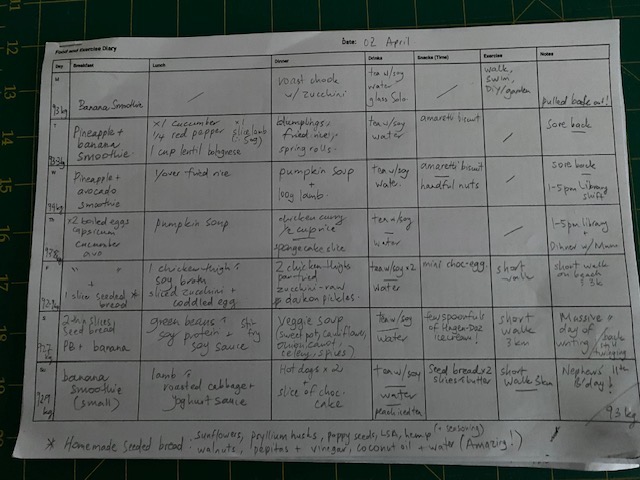 Food and Exercise Diary
Date: 02 April
Day Breakfast Lunch Dinner Drinks Snacks (Time) Exercise Notes
93kg
Banana Smoothie
roast chook
w/ zucchini
tea w/soy
water
glass Solo
walk,
swim,
DIY/garden
pulled back out!
Pineapple +
banana
smoothie
x1 cucumber
1/4 red pepper
1 cup lentil bolognese
dumplings,
fried rice,
spring rolls.
tea w/soy
water
amaretti biscuit
Sore back
Pineapple +
avocado
smoothie
l/over fried rice
pumpkin soup
+
100g lamb.
tea w/soy
water.
amaretti biscuit
handful nuts
sore back
1-5pm Library
shift
x2 boiled eggs
capsicum
cucumber
avo
pumpkin soup
chicken curry
1/2 cup rice
sponge cake slice
tea w/soy
water
1-5pm library
+
Dinner w/ Mum
" "
+
1 slice seeded *
bread
1 chicken thigh :
soy broth,
sliced zucchini +
coddled egg.
2 chicken thighs
pan fried
zucchini - raw
daikon pickles.
tea w/soy x2
water
mini choc-egg.
short
walk
short walk
on beach
3k
2 slices
seed bread
PB + banana
green beans :
soy protein +
soy sauce
Veggie soup
(sweet pot, cauliflower,
onion, carrot,
celery, spices)
tea w/soy
water
few spoonfuls
of Hagen-Daz
ice cream!
short
walk
3km
Massive
day of
writing
back is
twinging
banana
smoothie
(small)
lamb :
roasted cabbage +
yoghurt sauce
Hot dogs x 2
+
slice of choc.
cake
tea w/soy
water
peach iced tea
Seed bread x2
slices + butter
short
walk 3km
Nephew's 11th
B'day!
93kg
* Homemade seeded bread: sunflowers, psyllium husks, poppy seeds, LSA, hemp (+ seasoning)
walnuts, pepitas + vinegar, coconut oil + water (Amazing!)